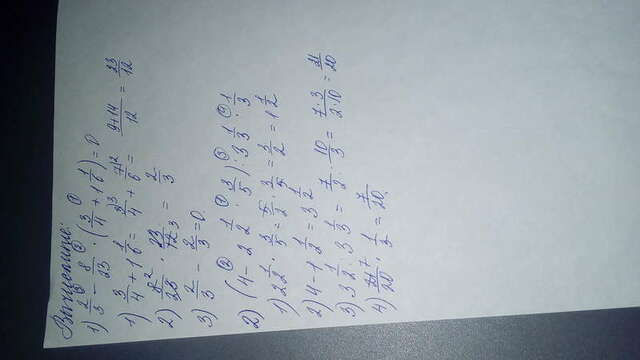 Вычислите:
1) 2/3 - 8/23 · (3/4 + 1 1/6) = 0
1) 3/4 + 1 1/6 = 3/4 + 7/6 = 9+14/12 = 23/12
2) 8/23 · 23/12 = 2/3
3) 2/3 - 2/3 = 0
2) (4 - 2 1/2 · 3/5) : 3 1/3 · 1/3
1) 2 1/2 · 3/5 = 5/2 · 3/5 = 3/2 = 1 1/2
2) 4 - 1 1/2 = 3 1/2
3) 3 1/2 : 3 1/3 = 7/2 : 10/3 = 7·3/2·10 = 21/20
4) 21/20 · 1/3 = 7/20.